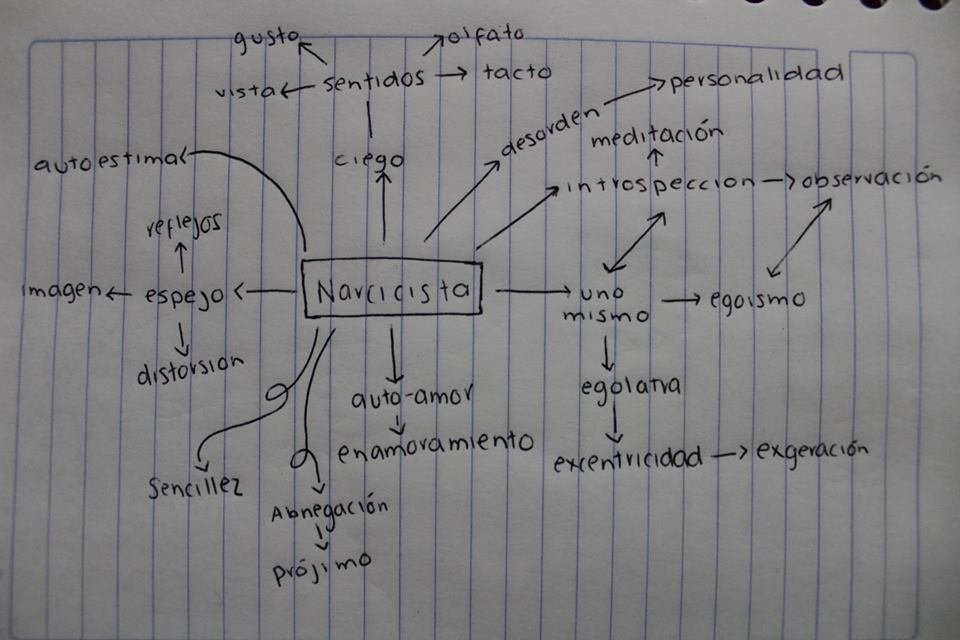 gusto
olfato
vista
sentidos
tacto
personalidad
desorden
meditación
ciego
autoestima
introspeccion
observación
reflejos
imagen
espejo
Narcicista
uno
mismo
egoismo
distorsion
auto-amor
egolatra
enamoramiento
excentricidad
exgeración
Sencillez
Abnegación
prójimo